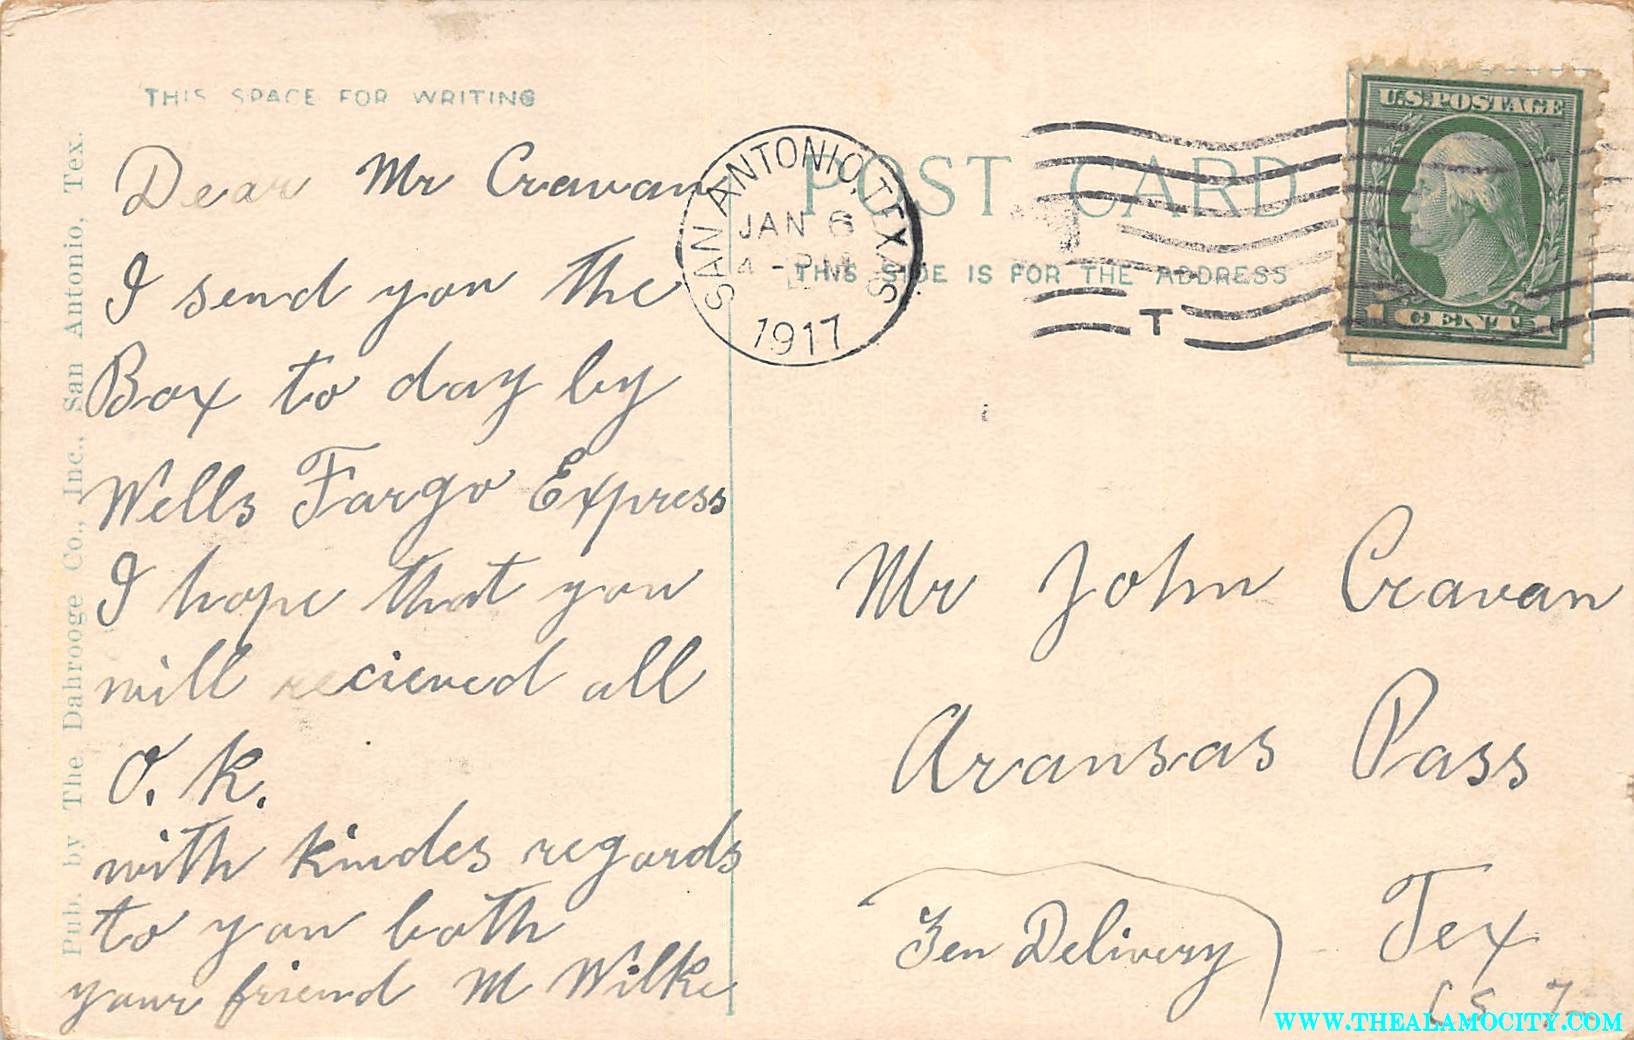 THIS SPACE FOR WRITING
Dear Mr Cravan
I send you the
Box to day by
Wells Fargo Express
I hope that you
will recieved all
O.K.
with kindes regards
to you both
your friend M Wilke
Pub. by The Dahrooge Co., Inc., San Antonio, Tex.
SAN ANTONIO, TEXAS
JAN 6
4-PM
1917
POST CARD
THIS SIDE IS FOR THE ADDRESS
T
U.S. POSTAGE
1 CENT 1
Mr John Cravan
Aransas Pass
Tex
Gen Delivery
WWW.THEALAMOCITY.COM